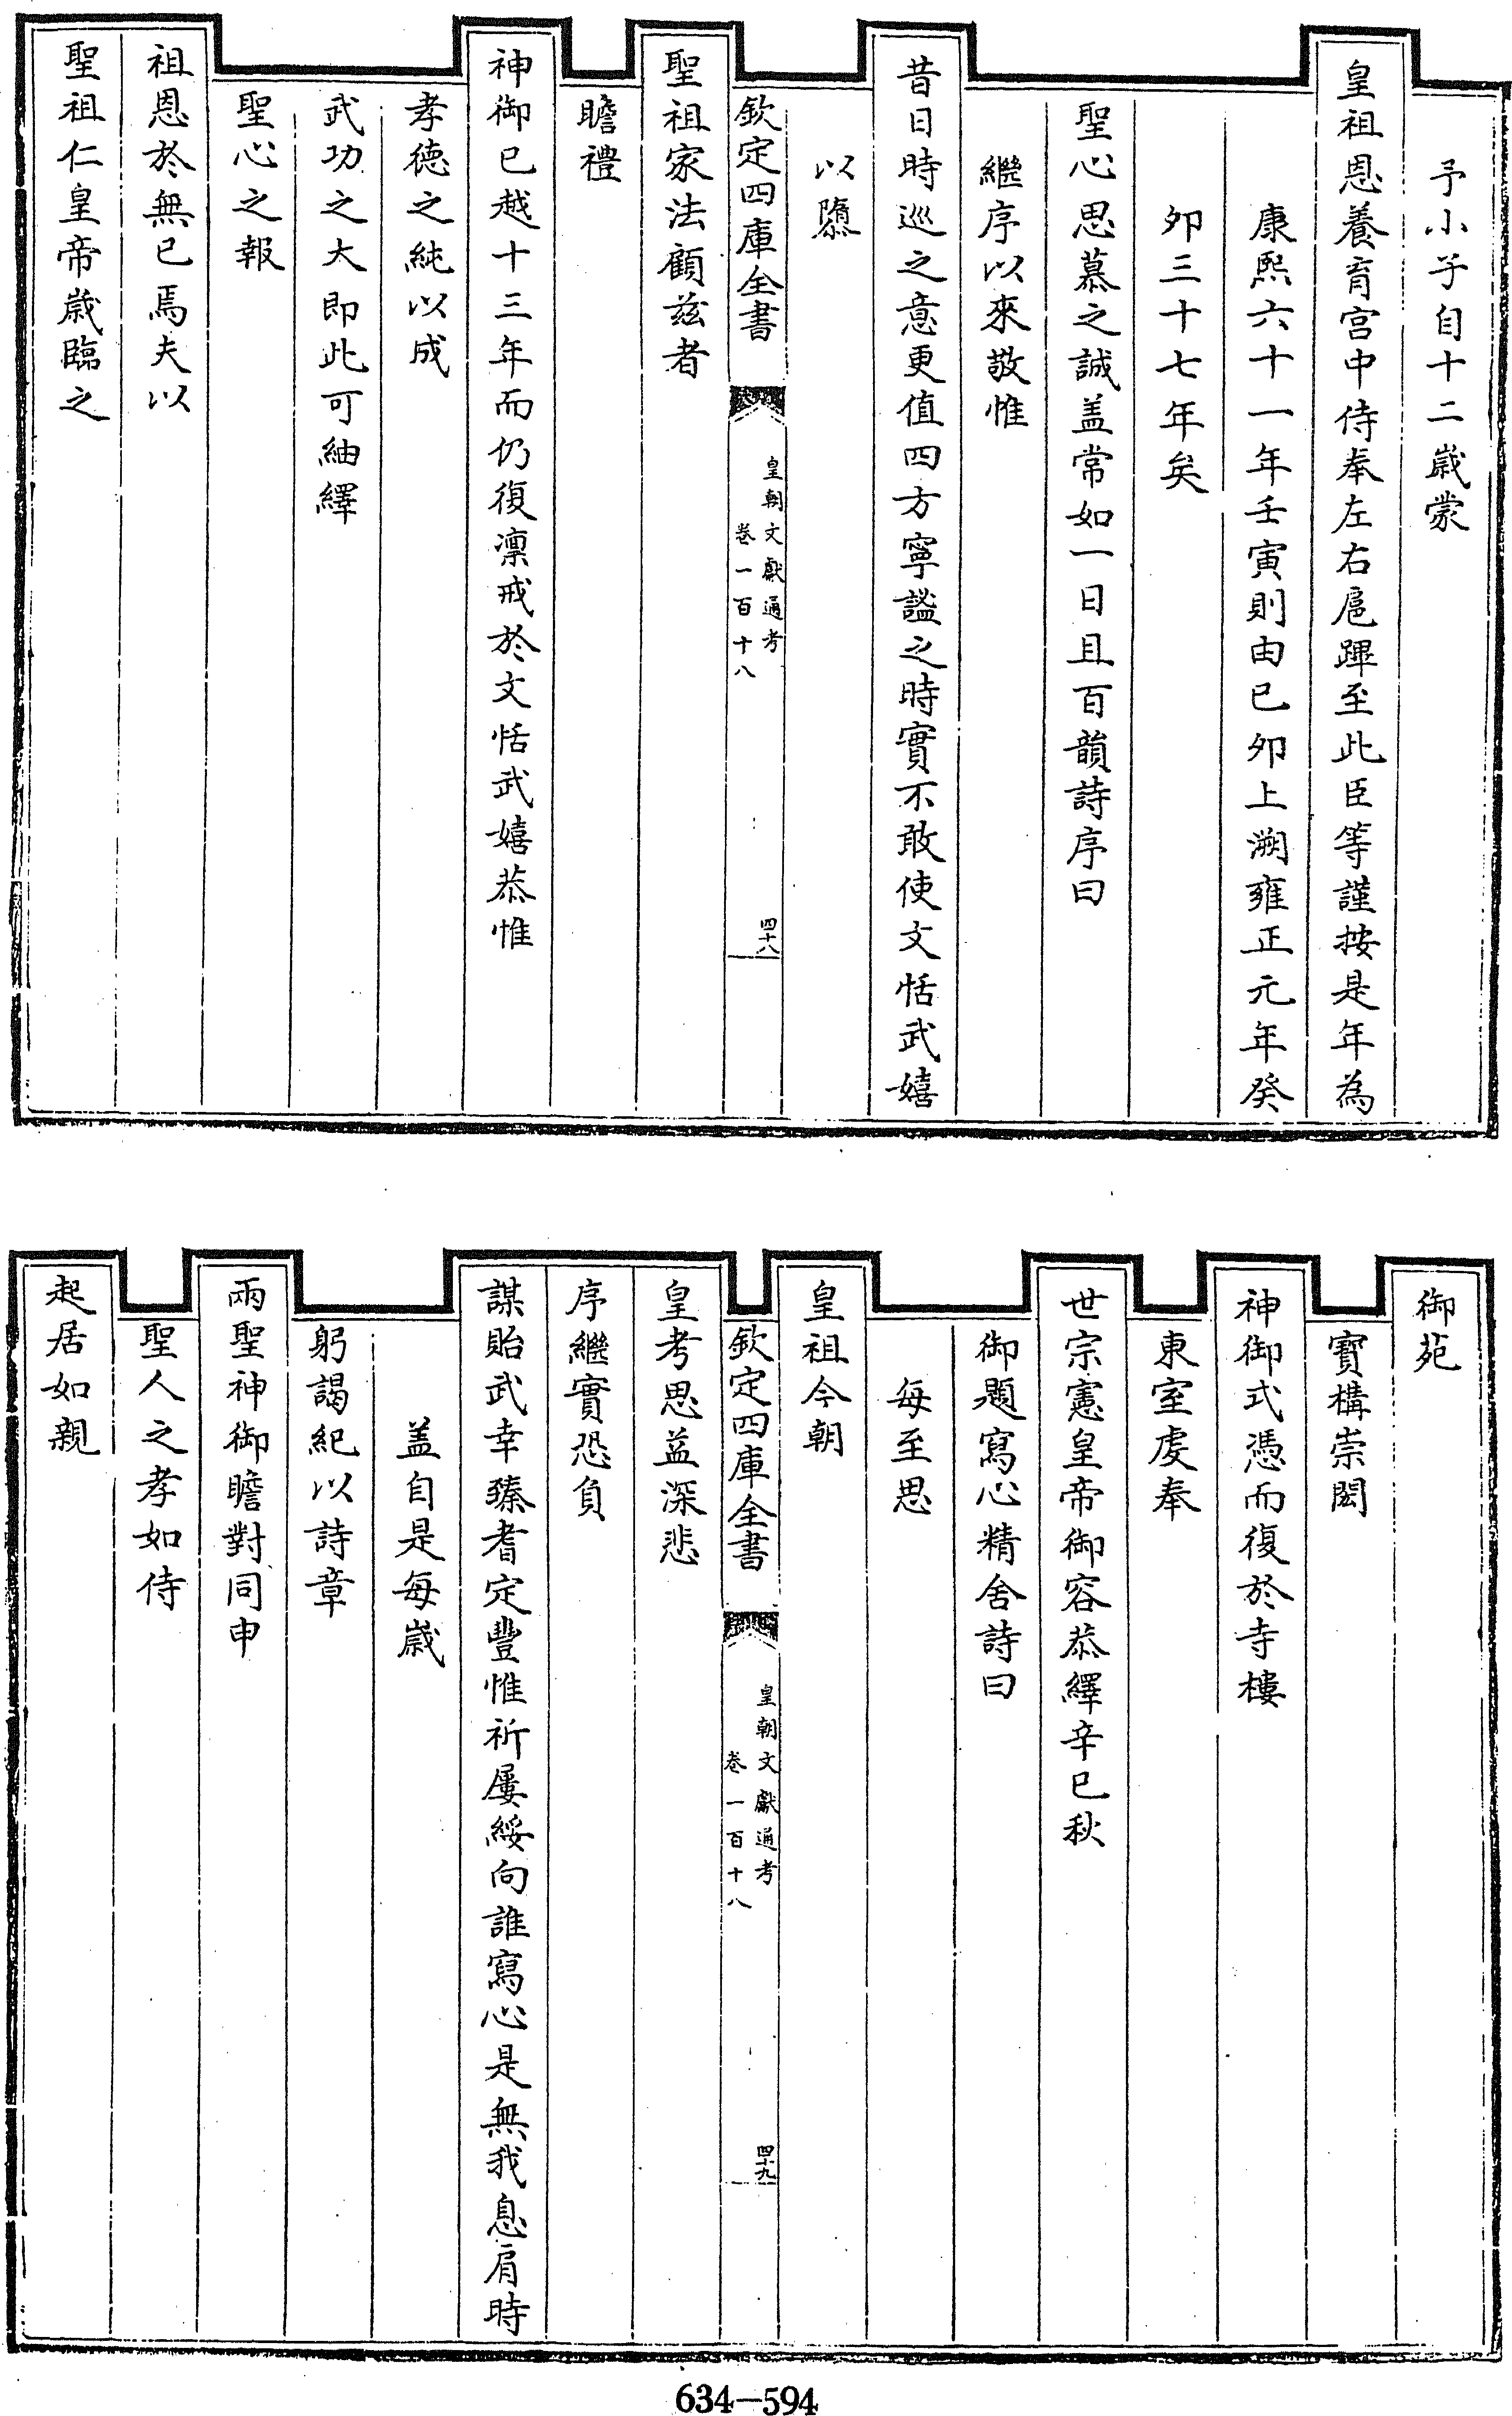 予小子自十二歲蒙
皇祖恩養育宫中侍奉左右扈蹕至此臣等謹按是年為
康熙六十一年壬寅則由己夘上溯雍正元年癸
夘三十七年矣
聖心思慕之誠盖常如一日且百韻詩序曰
繼序以來敬惟
昔日時巡之意更值四方寧謐之時實不敢使文恬武嬉
以隳
欽定四庫全書
皇朝文獻通考
卷一百十八
四十八
聖祖家法顧兹者
瞻禮
神御已越十三年而仍復凛戒於文恬武嬉恭惟
孝德之純以成
武功之大即此可紬繹
聖心之報
祖恩於無已焉夫以
聖祖仁皇帝歲臨之
御苑
寳構崇閎
神御式憑而復於寺樓
東室䖍奉
世宗憲皇帝御容恭繹辛巳秋
御題寫心精舍詩曰
每至思
皇祖今朝
欽定四庫全書
皇朝文獻通考
卷一百十八
四十九
皇考思益深悲
序繼實恐負
謀貽武幸臻耆定豐惟祈屢綏向誰寫心是無我息肩時
盖自是每歲
躬謁紀以詩章
兩聖神御瞻對同申
聖人之孝如侍
起居如親
634-594